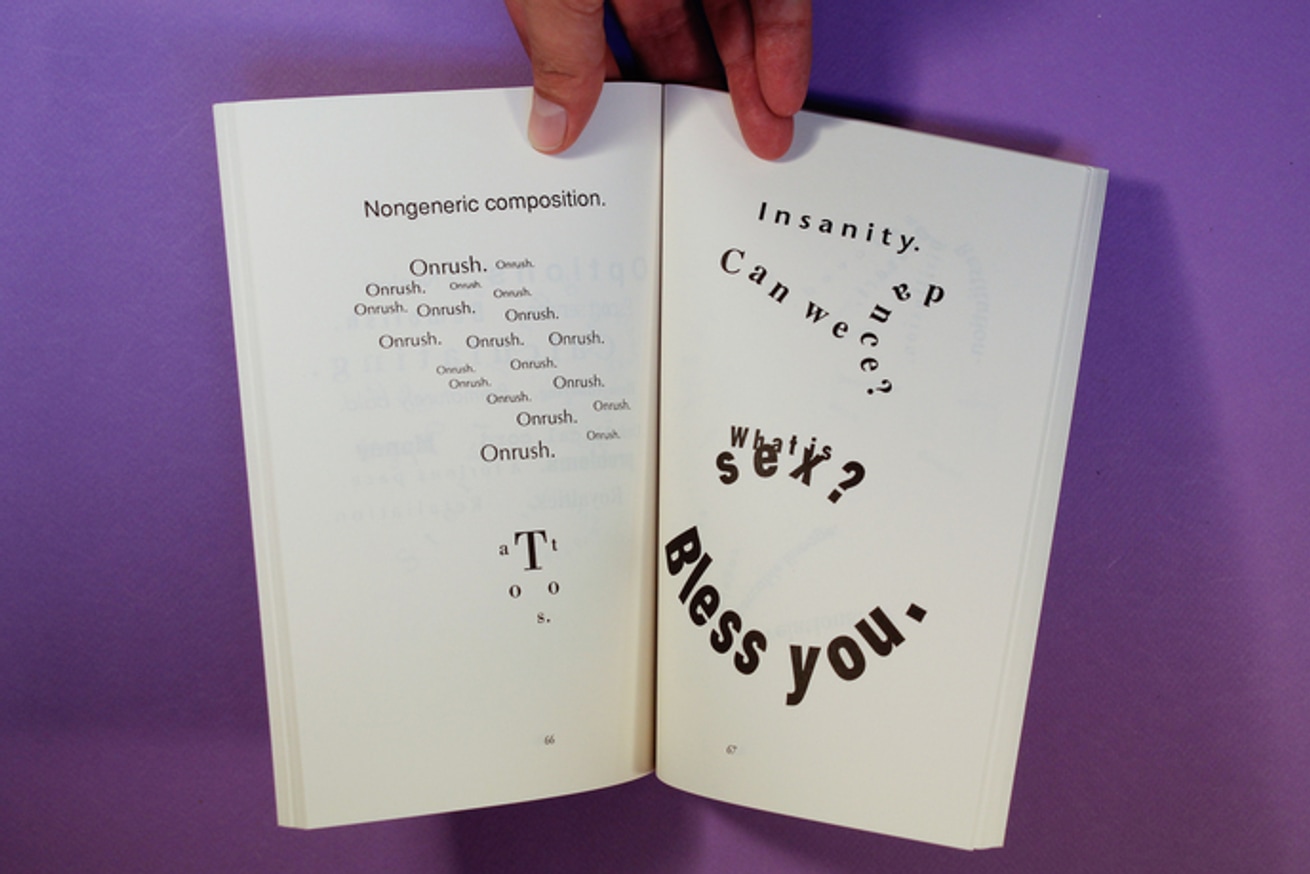 Nongeneric composition.
Onrush. Onrush.
Onrush. Onrush. Onrush.
Onrush. Onrush. Onrush.
Onrush. Onrush. Onrush.
Onrush. Onrush.
Onrush. Onrush.
Onrush. Onrush.
Onrush. Onrush.
Onrush.
a T t
o o
s.
66
Insanity.
Can we
p a nce?
What is
sex?
Bless you.
67